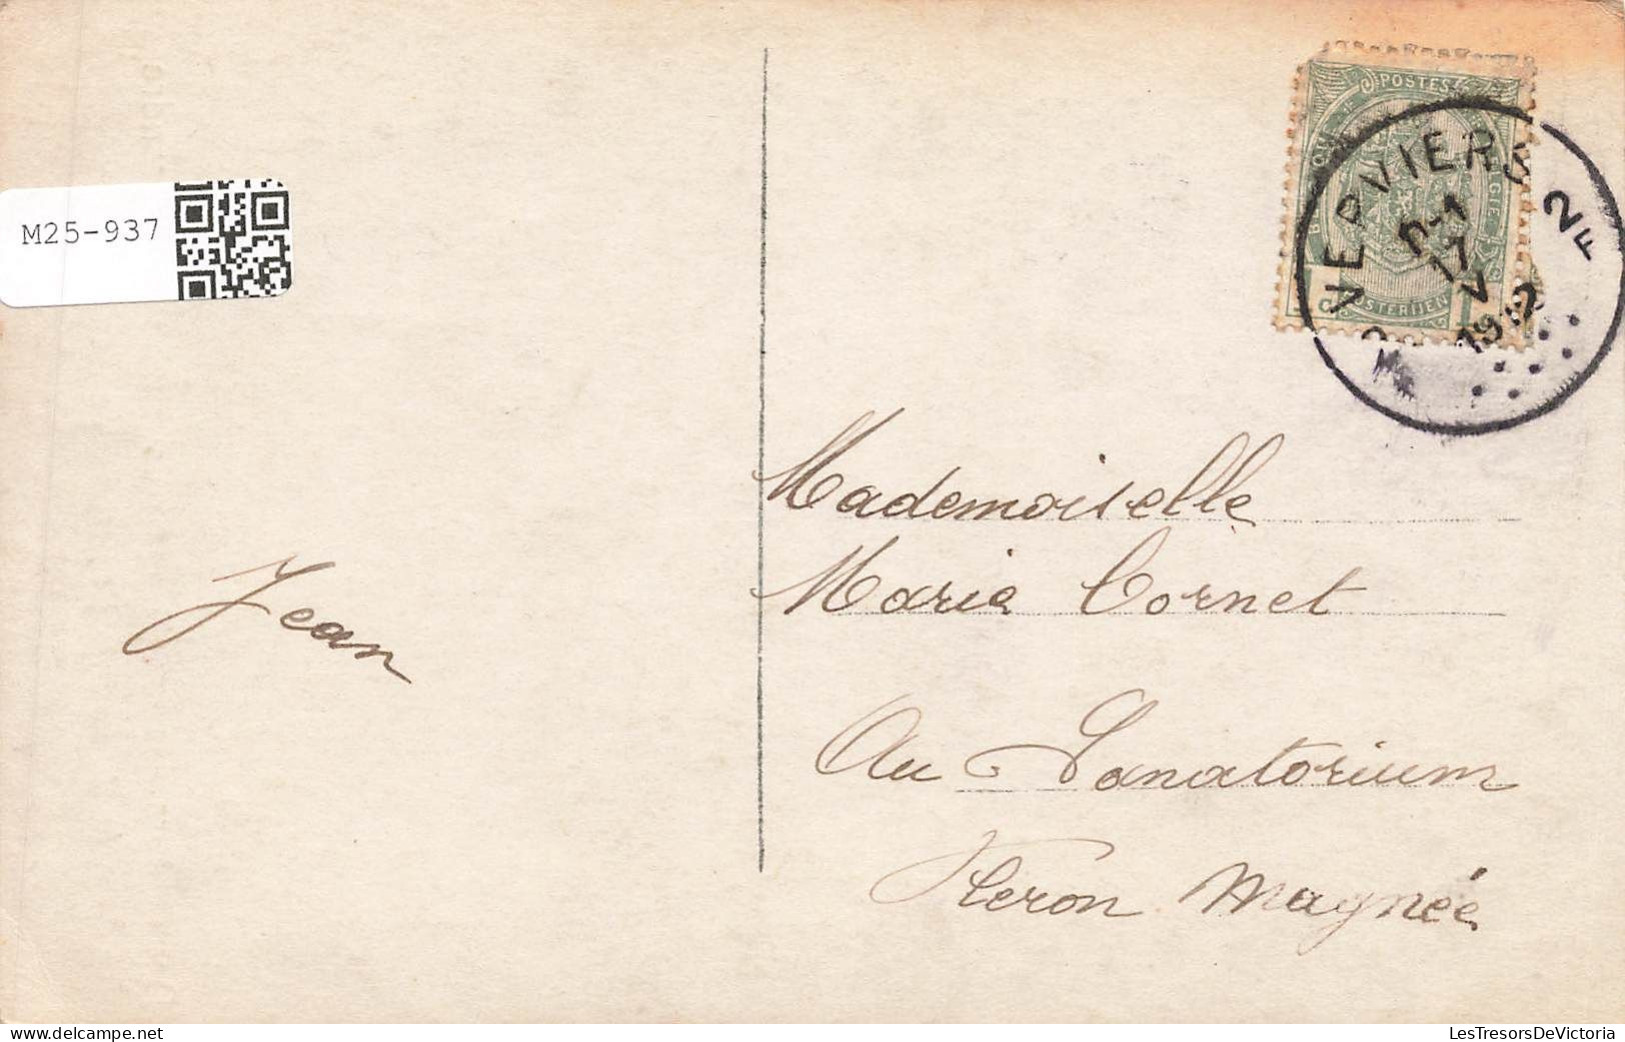 M25-937
POSTES
VERVIERS 2
F
17
V
1912
Mademoiselle
Marie Cornet
Jean
Au Sanatorium
Fleron Magnée
LesTresorsDeVictoria
www.delcampe.net